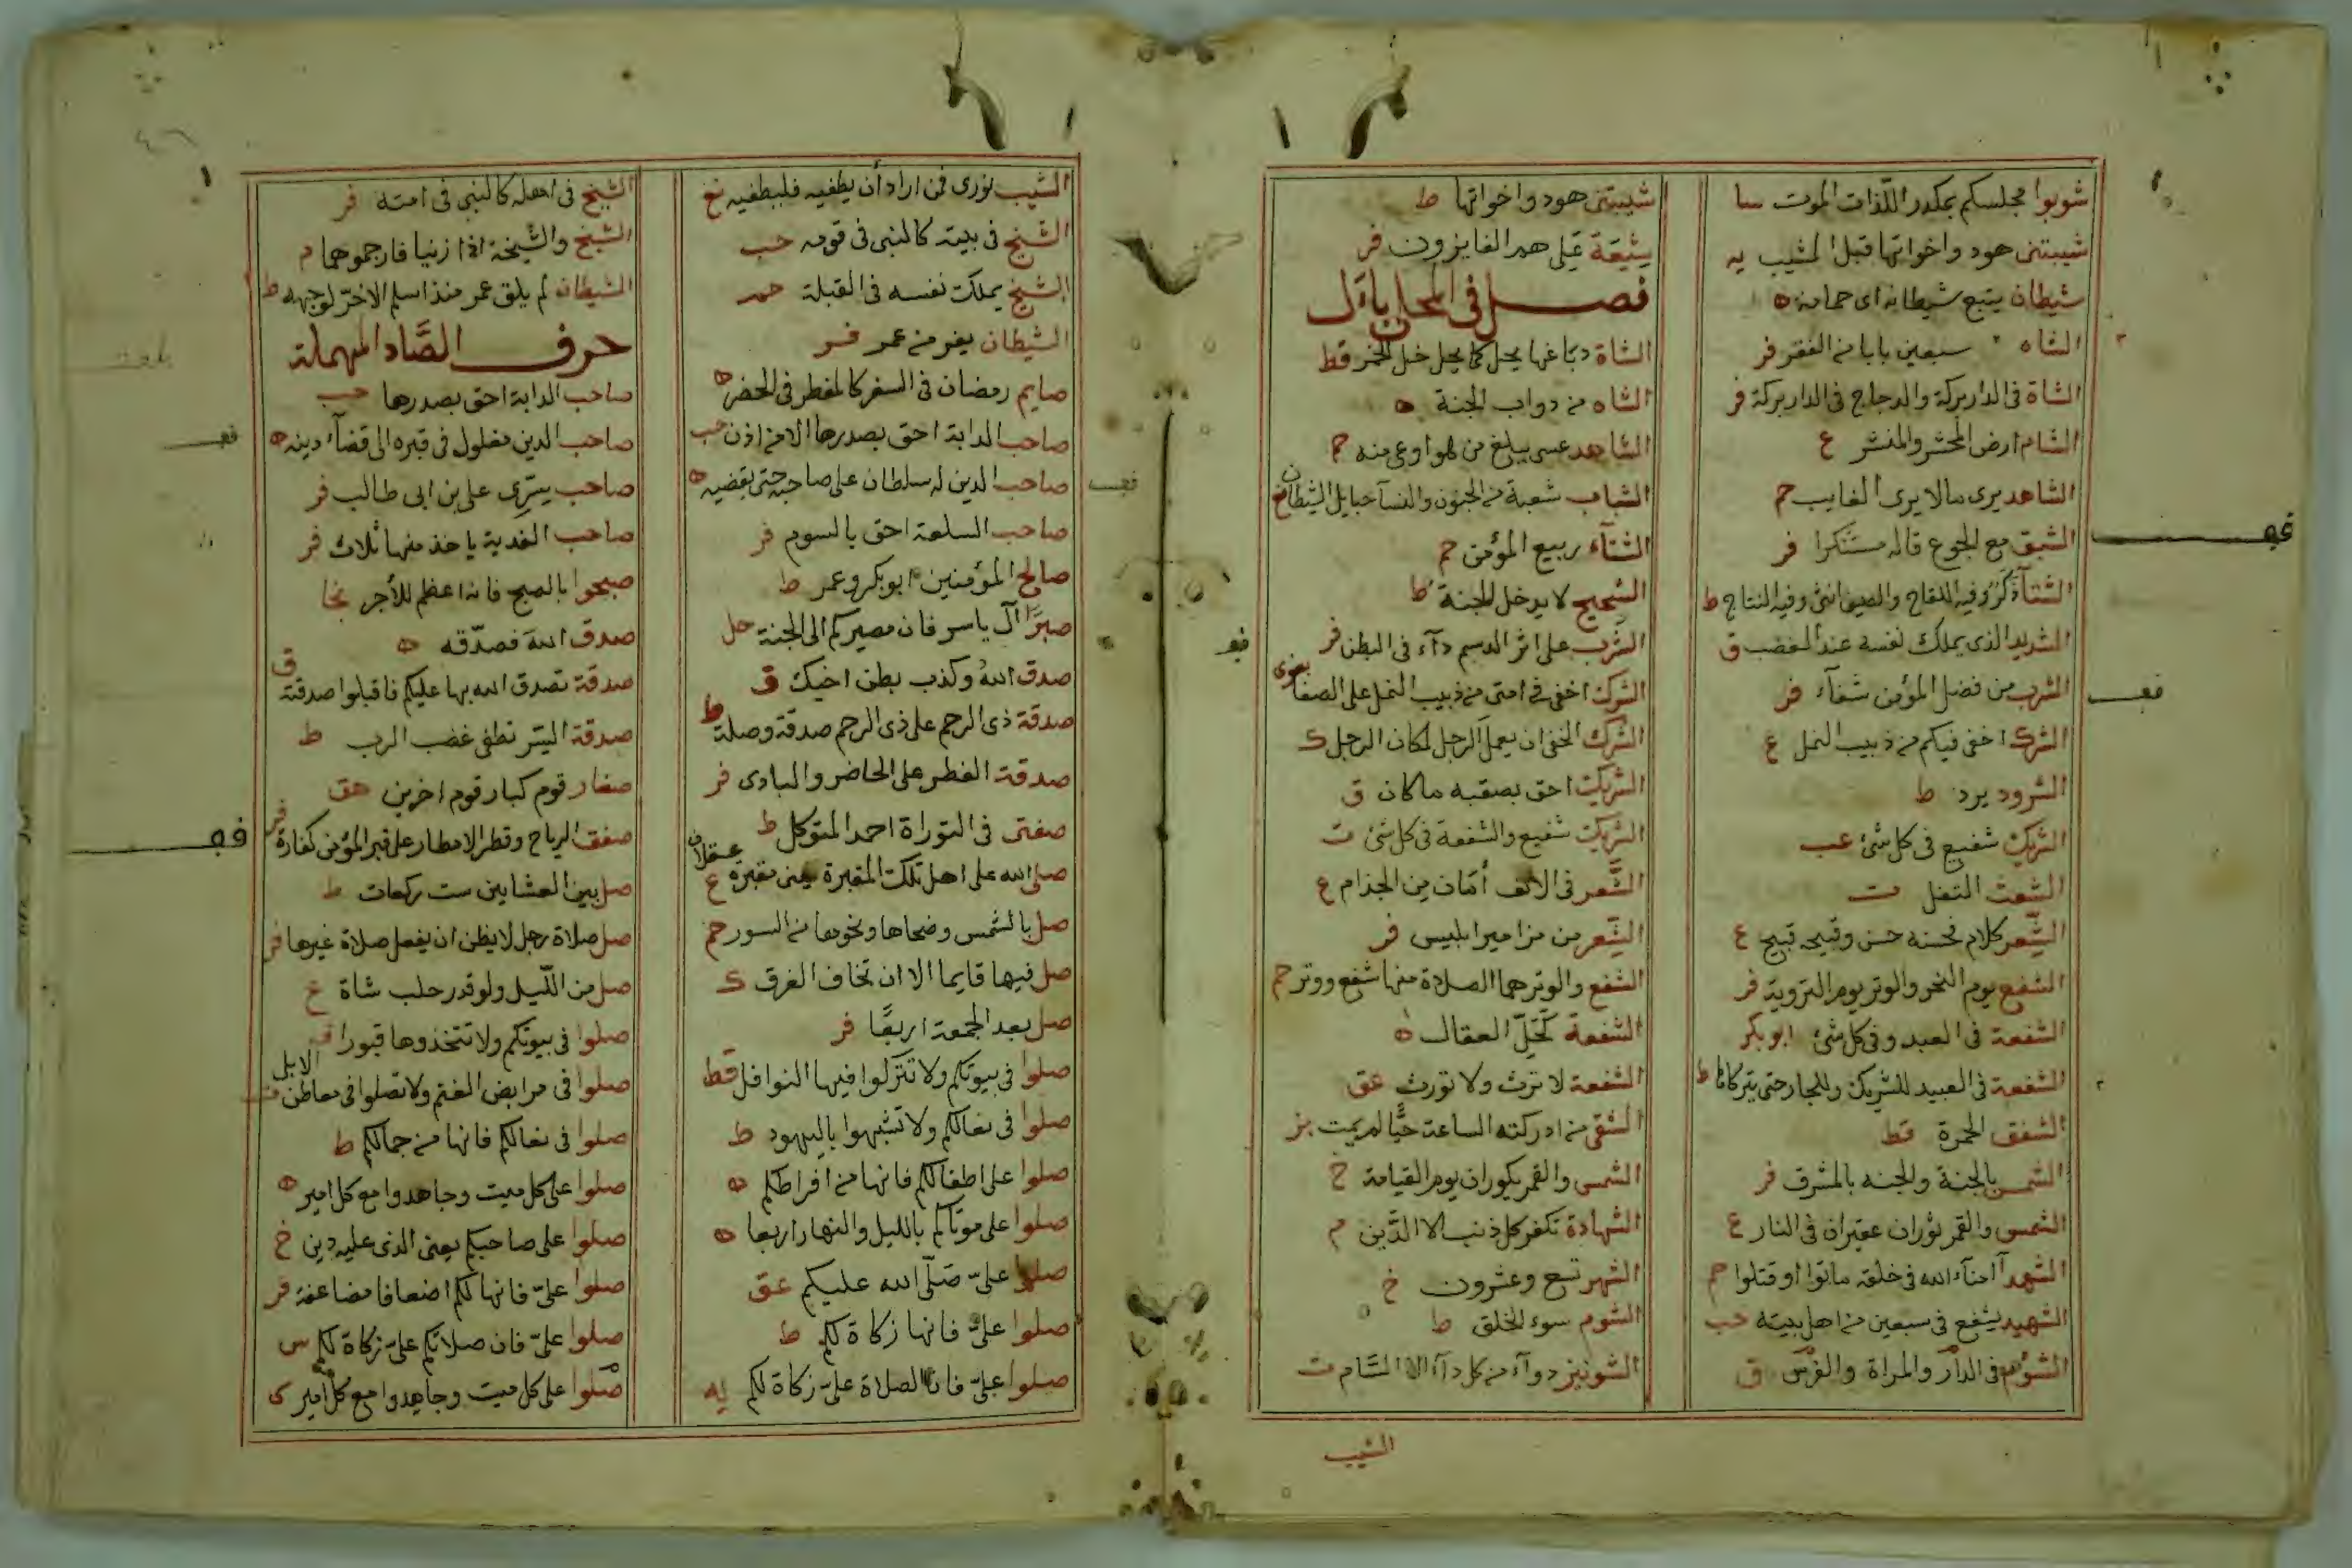 شوبوا مجلسكم بمكدر اللذات الموت سا
شيبتنى هود واخواتها قبل المشيب يه
شيطان يتبع شيطانه اى حمامة ه
الشاه سبعين بابا من الفقر فر
الشاة فى الدار بركة والدجاج فى الدار بركة فر
الشام ارض المحشر والمنشر ع
الشاهد يرى مالا يرى الغايب حم
الشبق مع الجوع قاله مستنكرا فر
الشتآء ذكر وفيه اللقاح والصيف انثى وفيه النتاج ط
الشديد الذى يملك نفسه عند الغضب ق
الشرب من فضل المؤمن شفآء فر
الشرك اخفى فيكم من دبيب النمل ع
الشرود يرد ط
الشريك شفيع فى كل شئ عب
الشعث التفل ت
الشعر كلام فحسنه حسن وقبيحه قبيح ع
الشفع يوم النحر والوتر يوم التروية فر
الشفعة فى العبد وفى كل شئ ابو بكر
الشفعة فى العبيد للشريك وللجار حتى يتركاها ط
الشفق الحمرة قط
الشمس بالجنة والجنه بالمشرق فر
الشمس والقمر ثوران عقيران فى النار ع
الشهدآ امنآء الله فى خلقه ماتوا او قتلوا حم
الشهيد يشفع فى سبعين من اهل بيته حب
الشوم فى الدار والمراة والفرس ق
شيبتنى هود واخواتها ط
شيعة على هم الفايزون فر
فصل فى المحلى بال
الشاة دباغها يحل كما يحل خل الخمر قط
الشاه من دواب الجنة ه
الشاهد عسى يبلغ من هو اوعى منه حم
الشباب شعبة من الجنون والنسآ حبايل الشيطان
الشتآء ربيع المؤمن حم
الشحيح لا يدخل الجنة ط
الشرب على اثر الدسم دآء فى البطن فر
الشرك اخفى فى امتى من دبيب النمل على الصفا
الشرك الخفى ان يعمل الرجل لمكان الرجل ك
الشريك احق بصقبه ماكان ق
الشريك شفيع والشفعة فى كل شئ ت
الشعر فى الانف أمان من الجذام ع
الشعر من مزامير ابليس فر
الشفع والوتر هما الصلاة منها شفع ووتر حم
الشفعة كحل العقال ه
الشفعة لا ترث ولا تورث عق
الشقى من ادركته الساعة حيا لم يمت بز
الشمس والقمر يكوران يوم القيامة خ
الشهادة تكفر كل ذنب الا الدين م
الشهر تسع وعشرون خ
الشوم سوء الخلق ط
الشونيز دوآء من كل دآء الا السام ت
الشيب
الشيب نورى فمن اراد أن يطفيه فليطفيه نخ
الشيخ فى بيته كالنبى فى قومه حب
الشيخ يملك نفسه فى القبلة حم
الشيطان يفر من عمر فر
صايم رمضان فى السفر كالمفطر فى الحضر ه
صاحب الدابة احق بصدرها الا من اذن حب
صاحب الدين له سلطان على صاحبه حتى يقضيه ه
صاحب السلعة احق بالسوم فر
صالح المؤمنين ابو بكر وعمر ط
صبرًا آل ياسر فان مصيركم الى الجنة حل
صدق الله وكذب بطن اخيك ق
صدقة ذى الرحم على ذى الرحم صدقة وصلة ط
صدقة الفطر على الحاضر والبادى فر
صفتى فى التوراة احمد المتوكل ط
صلى الله على اهل تلك المقبرة يعنى مقبرة عسقلان ع
صل بالشمس وضحاها ونحوها من السور حم
صل فيها قايما الا ان تخاف الغرق ك
صل بعد الجمعة اربعًا فر
صلوا فى بيوتكم ولا تتركوا فيها النوافل قط
صلوا فى نعالكم ولا تشبهوا باليهود ط
صلوا على اطفالكم فانها من افراطكم ه
صلوا على موتاكم بالليل والنهار اربعا ه
صلوا علىّ صلّى الله عليكم عق
صلوا علىّ فانها زكاة لكم ط
صلوا علىّ فان الصلاة علىّ زكاة لكم يه
الشيخ فى اهله كالنبى فى امته فر
الشيخ والشيخة اذا زنيا فارجموهما م
الشيطان لم يلق عمر منذ اسلم الا خرّ لوجهه ط
حرف الصَّاد المهملة
صاحب الدابة احق بصدرها حب
صاحب الدين مغلول فى قبره الى قضآء دينه ه
صاحب سرّى على بن ابى طالب فر
صاحب الفدية ياخذ منها ثلاث فر
صبحوا بالصبح فانه اعظم للأجر نجا
صدق الله فصدّقه ه
صدقة تصدق الله بها عليكم فاقبلوا صدقته ق
صدقة السّر تطفى غضب الرب ط
صغار قوم كبار قوم اخرين هق
صفق الرياح وقطر الامطار على قبر المؤمن كفارة فر
صل بين العشاين ست ركعات ط
صل صلاة رجل لا يظن ان يفعل صلاة غيرها فر
صل من اللّيل ولو قدر حلب شاة ع
صلوا فى بيوتكم ولا تتخذوها قبورا
صلوا فى مرابض الغنم ولا تصلوا فى معاطن الابل ت
صلوا فى نعالكم فانها من جمالكم ط
صلوا على كل ميت وجاهدوا مع كل امير ه
صلوا على صاحبكم يعنى الذى عليه دين خ
صلوا علىّ فانها لكم اضعافا مضاعفة فر
صلوا علىّ فان صلاتكم علىّ زكاة لكم س
صلوا على كل ميت وجاهدوا مع كل امير ى